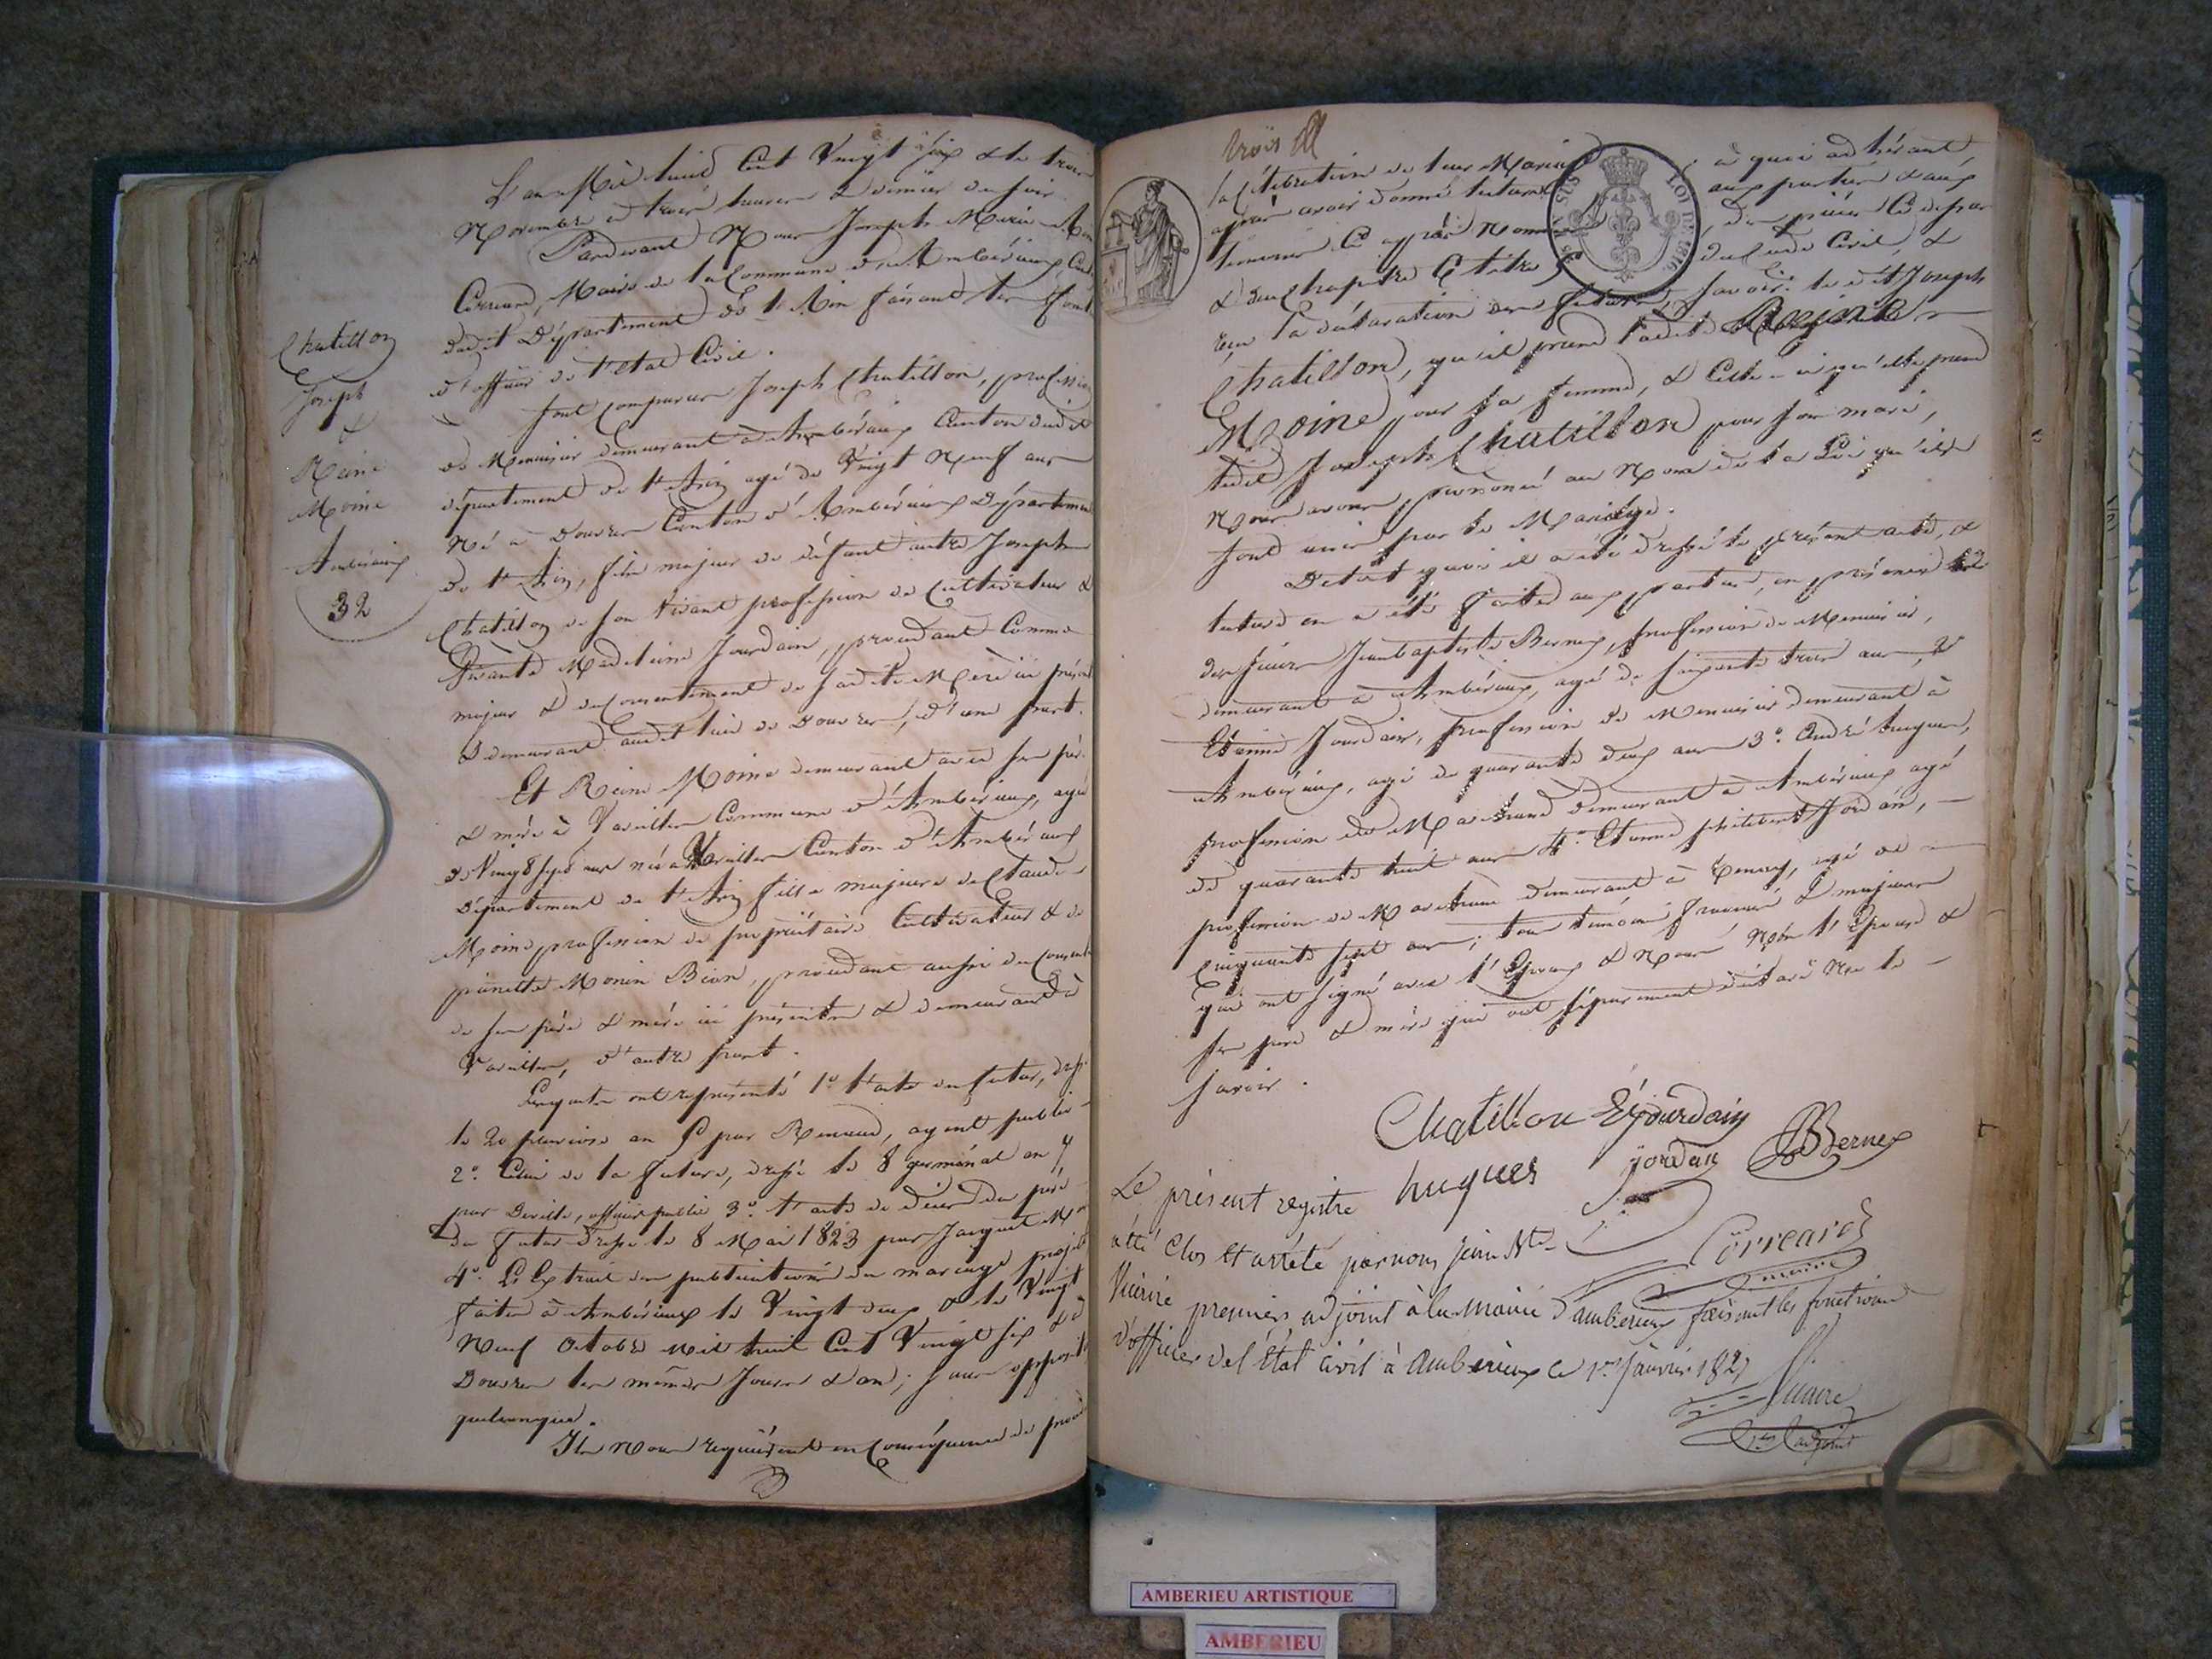 L'an Mil huit Cent Vingt Six & le trois
Novembre à trois heures & demies du soir
Pardevant Nous Joseph Marie
Correard, Maire de la Commune d'Ambérieux,
dudit Département de l'Ain faisant les fonct
d'officier de l'état Civil.
Chatillon
Joseph
&
Reine
Moine
Ambérieux
32
Sont comparus Joseph Chatillon, profession
de Menuisier demeurant à Ambérieux Canton dudit
département de l'Ain agé de Vingt Neuf ans
Né à Douvres Canton d'Ambérieux Départemen
de l'Ain, fils majeur de défunt autre Joseph
Chatillon de son vivant profession de Cultivateur &
vivante Jourdain, procédant Comme
majeur & du Consentement de sadite Mère ici présen
& demeurant audit lieu de Douvres, d'une part.
Et Reine Moine demeurant avec ses père
& mère à Vareilles Commune d'Ambérieux, agée
de Vingt Sept ans née à Vareilles Canton d'Ambérieux
Département de l'Ain fille majeure de Claude
Moine profession de propriétaire Cultivateur & de
Monin Bion, procédant aussi du Consente
de ses père & mère ici présents & demeurant à
Vareilles, d'autre part.
Lesquels ont représenté 1º l'acte du futur,
le 20 pluviose an 5 par Renaud, agent public
2º Celui de la future, dressé le 8 germinal an 7
par Deville, officier public 3º l'acte de décès du père
du futur dressé le 8 Mai 1823 par Jacquet
4º L'Extrait des publications du mariage projeté
faites à Ambérieux le Vingt deux & le Vingt
Neuf Octobre Mil huit Cent Vingt Six & à
Douvres les mêmes Jours & an; sans oppositi
quelconque.
Ils Nous requièrent en Conséquence de procé
trois
la Célébration de leur Mariage à quoi adhérant
après avoir donné lecture aux parties & aux
témoins Ci après Nommés, des pièces Ci dessus
& du chapitre 6 titre 5 du Code Civil, &
reçu la déclaration des futurs, Savoir: le dit Joseph
Chatillon, qu'il prend ladite Reine
Moine pour sa femme, & Celle-ci qu'elle prend
ledit Joseph Chatillon pour son mari,
Nous avons prononcé au Nom de la Loi qu'ils
sont unis par le Mariage.
De tout quoi il a été dressé le présent acte, &
lecture en a été faite aux parties, en présence
des sieurs Jean baptiste Bernex, profession de Menuisier,
demeurant à Ambérieux, agé de soixante trois ans, 2º
Etienne Jourdain, profession de Menuisier demeurant à
Ambérieux, agé de quarante deux ans 3º André hugues,
profession de Marchand demeurant à Ambérieux agé
de quarante huit ans 4º Etienne philibert Jordan,
profession de demeurant à Tenay, agé de
Cinquante sept ans; tous témoins & majeurs
qui ont signé avec l'Epoux & Nous Non l'Epouse &
ses père & mère qui ont séparément déclaré Ne le
savoir.
Chatillon Ejourdain
hugues jordan JBBernex
Correard
maire
Le présent registre
a été Clos et arrêté par nous Jean
premier adjoint à la mairie d'ambérieux faisant les fonctions
d'officier de l'État Civil à Ambérieux Ce 1er Janvier 1827
1er adjoint
LOI DE 1816
AMBERIEU ARTISTIQUE
AMBERIEU